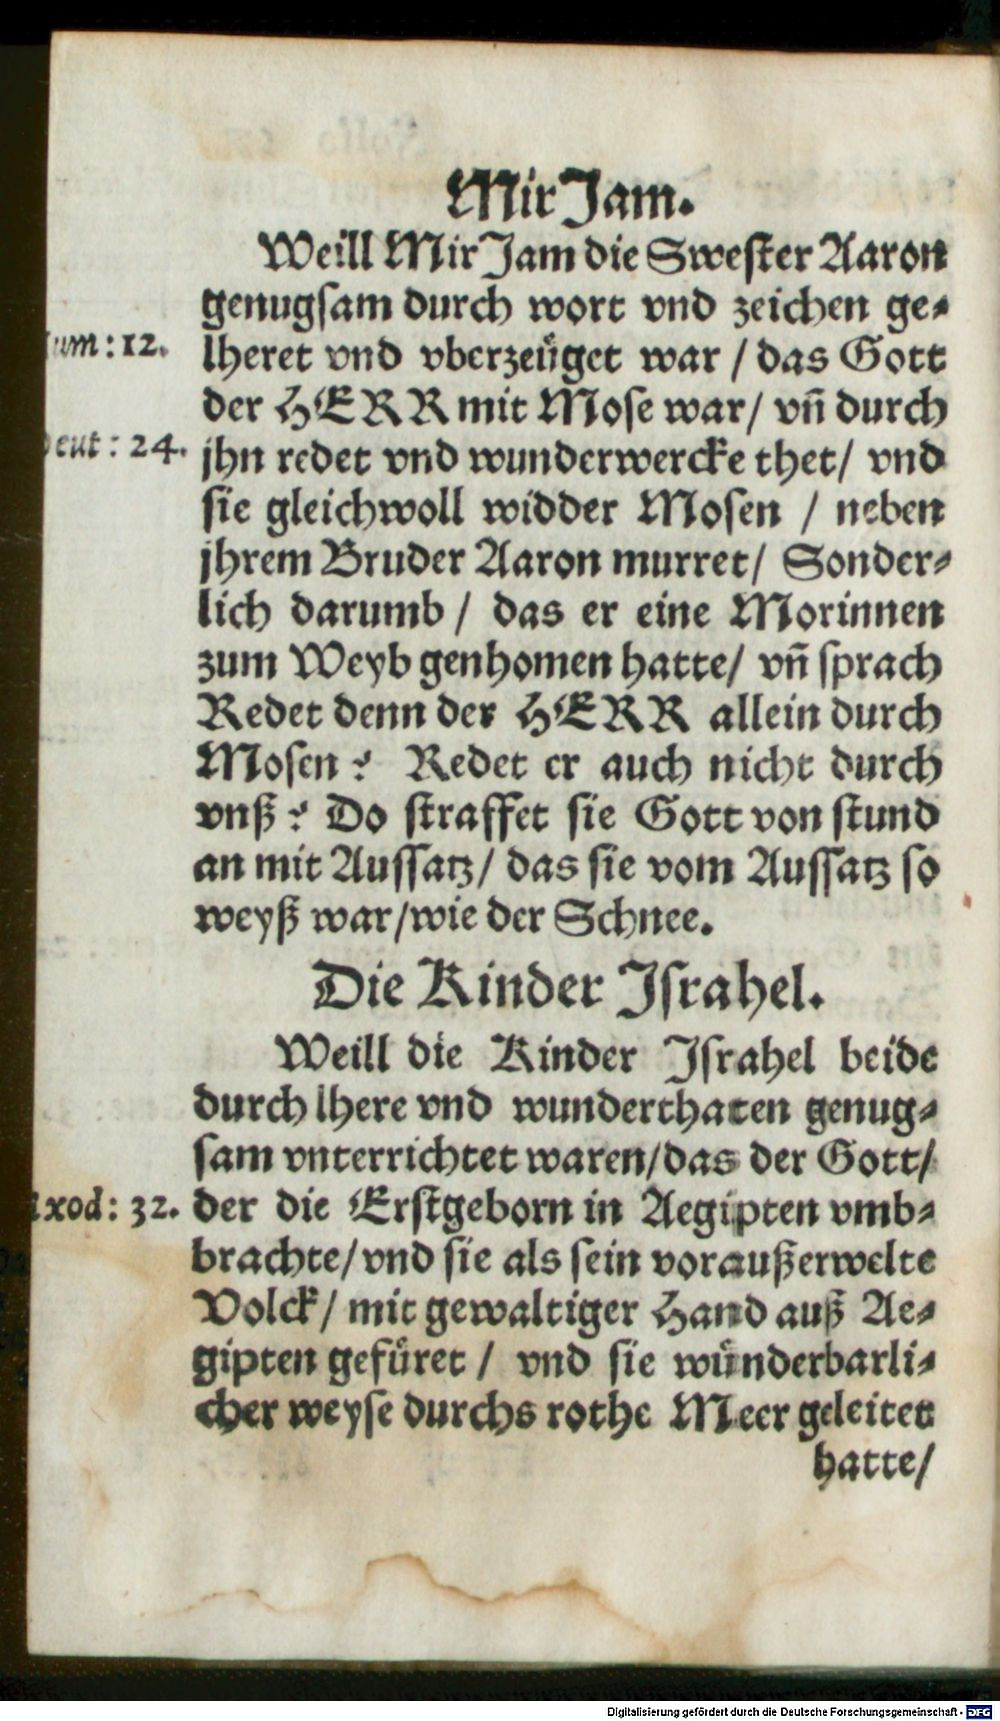 Mir Jam.
Weill Mir Jam die Swester Aaron
genugsam durch wort vnd zeichen ge⸗
um: 12.
lheret vnd vberzeüget war / das Gott
der HERR mit Mose war / vn̄ durch
eut: 24.
jhn redet vnd wunderwercke thet / vnd
sie gleichwoll widder Mosen / neben
jhrem Bruder Aaron murret / Sonder⸗
lich darumb / das er eine Morinnen
zum Weyb genhomen hatte / vn̄ sprach
Redet denn der HERR allein durch
Mosen? Redet er auch nicht durch
vnß? Do straffet sie Gott von stund
an mit Aussatz / das sie vom Aussatz so
weyß war / wie der Schnee.
Die Kinder Israhel.
Weill die Kinder Israhel beide
durch lhere vnd wunderthaten genug⸗
sam vnterrichtet waren / das der Gott /
xod: 32.
der die Erstgeborn in Aegipten vmb⸗
brachte / vnd sie als sein voraußerwelte
Volck / mit gewaltiger Hand auß Ae⸗
gipten gefüret / vnd sie wünderbarli⸗
cher weyse durchs rothe Meer geleitet
hatte /
Digitalisierung gefördert durch die Deutsche Forschungsgemeinschaft - DFG